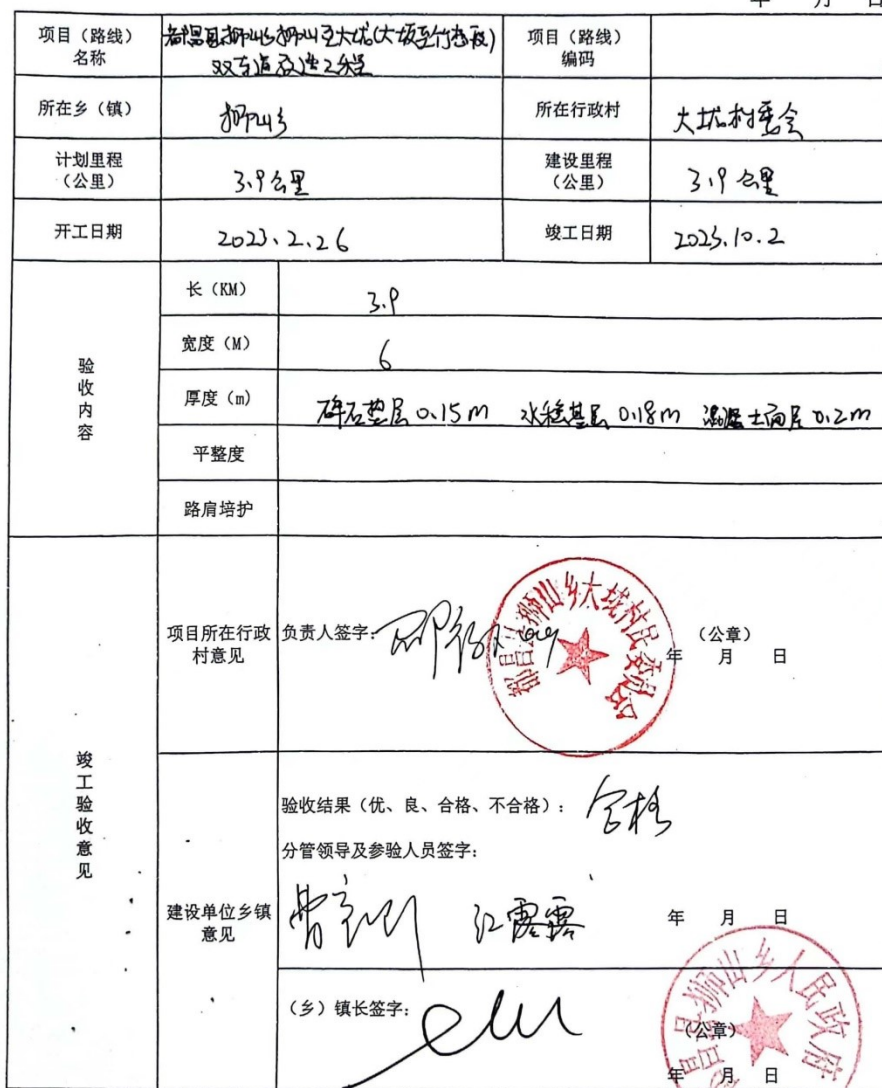 年 月 日
项目（路线）名称 都昌县狮山乡狮山至大垅(大坂至竹峦段)双车道改造工程 项目（路线）编码
所在乡（镇） 狮山乡 所在行政村 大垅村委会
计划里程（公里） 3.9公里 建设里程（公里） 3.9公里
开工日期 2023.2.26 竣工日期 2023.10.2
验收内容
长（KM） 3.9
宽度（M） 6
厚度（m） 碎石垫层0.15m 水稳基层0.18m 混凝土面层0.2m
平整度
路肩培护
竣工验收意见
项目所在行政村意见 负责人签字： （公章）
年 月 日
都昌县狮山乡大垅村民委员会
建设单位乡镇意见
验收结果（优、良、合格、不合格）： 合格
分管领导及参验人员签字：
江露露 年 月 日
（乡）镇长签字：
（公章）
年 月 日
昌县狮山乡人民政府